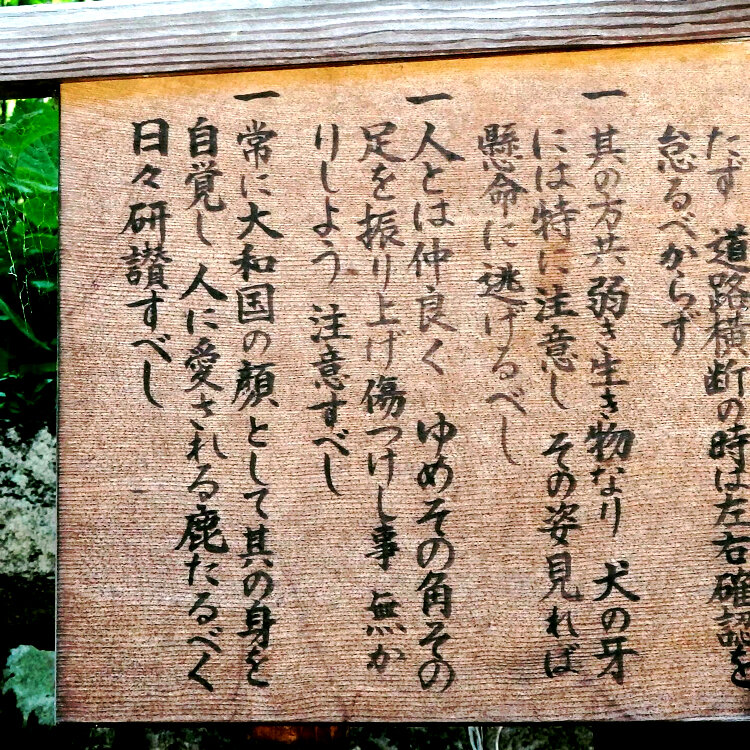 たず 道路横断の時は左右確認を
怠るべからず
一 其の方共弱き生き物なり 犬の牙
には特に注意し その姿見れば
懸命に逃げるべし
一 人とは仲良く ゆめその角その
足を振り上げ傷つけし事 無か
りしよう 注意すべし
一 常に大和国の顔として其の身を
自覚し 人に愛される鹿たるべく
日々研讃すべし